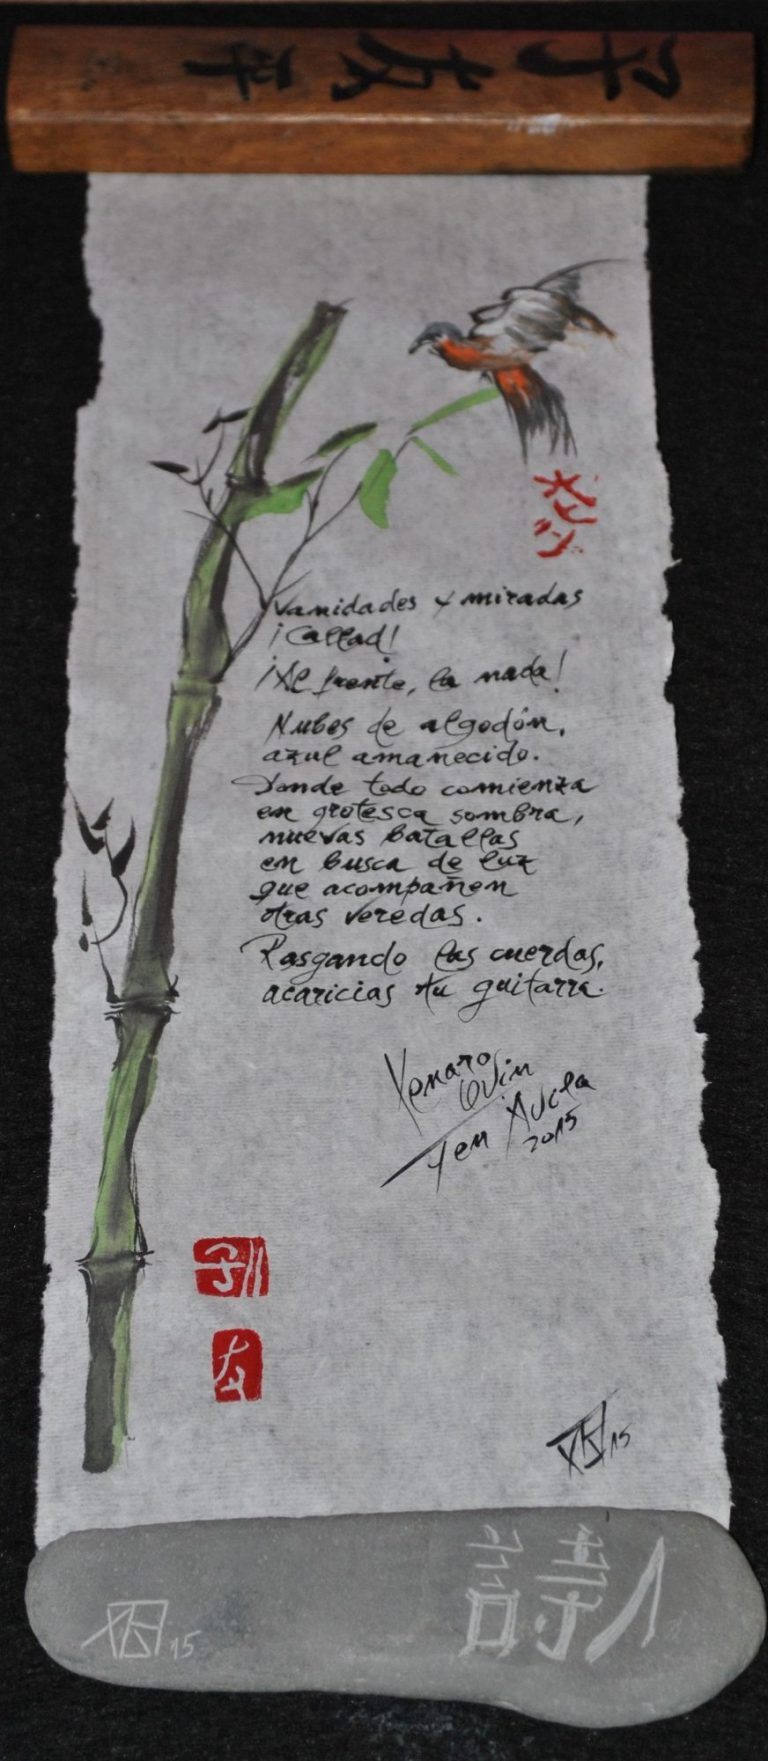 Vanidades y miradas
¡Callad!
¡Al frente, la nada!
Nubes de algodón,
azul amanecido.
Donde todo comienza
en grotesca sombra,
nuevas batallas
en busca de luz
que acompañen
otras veredas.
Rasgando las cuerdas,
acaricias tu guitarra.
Xenaro
Ovin
Yen Ávila
2015
15
15